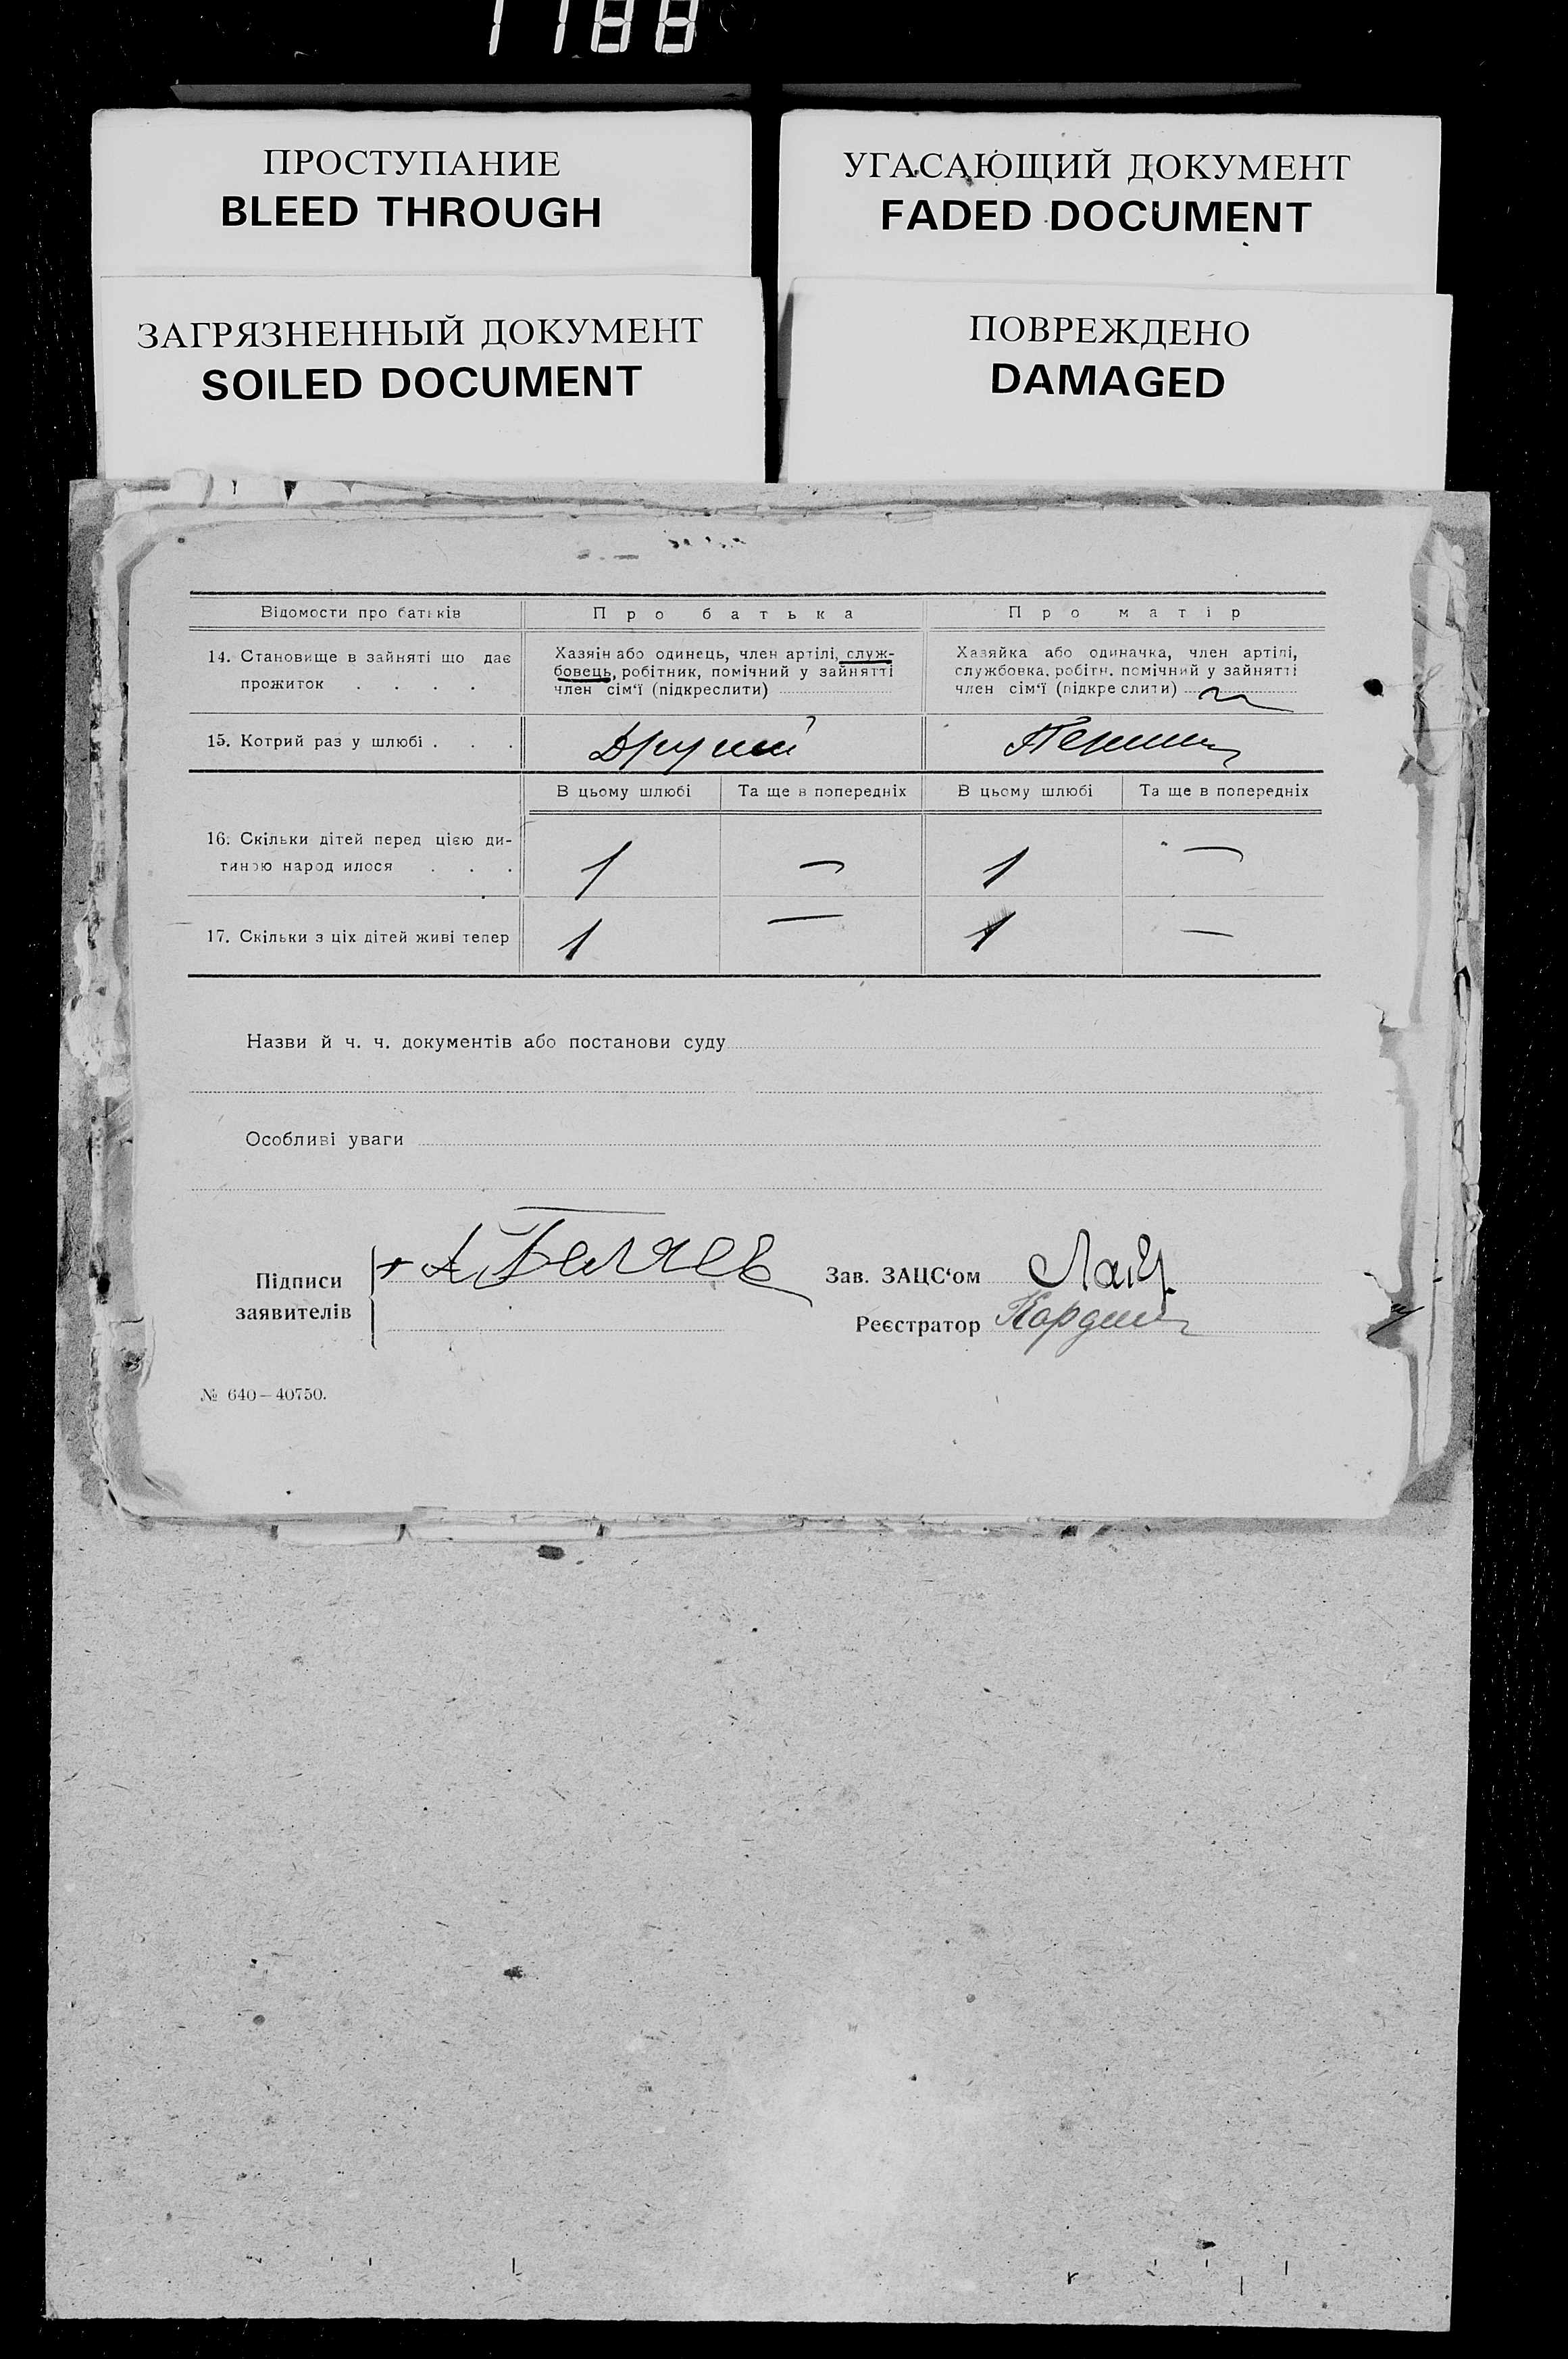 1188
ПРОСТУПАНИЕ
BLEED THROUGH
УГАСАЮЩИЙ ДОКУМЕНТ
FADED DOCUMENT
ЗАГРЯЗНЕННЫЙ ДОКУМЕНТ
SOILED DOCUMENT
ПОВРЕЖДЕНО
DAMAGED
Відомости про батьків
Про батька
Про матір
14. Становище в зайняті що дає
прожиток . . . .
Хазяін або одинець, член артілі, служ-
бовець, робітник, помічний у зайнятті
член сім'ї (підкреслити)
Хазяйка або одиначка, член артілі,
службовка, робітн. помічний у зайнятті
член сім'ї (підкреслити)
15. Котрий раз у шлюбі . . .
Другий
В цьому шлюбі
Та ще в попередніх
В цьому шлюбі
Та ще в попередніх
16. Скільки дітей перед цією ди-
тиною народилося . . .
1 — 1 —
17. Скільки з ціх дітей живі тепер
1 — 1 —
Назви й ч. ч. документів або постанови суду
Особливі уваги
Підписи
заявителів
А Беляев
Зав. ЗАЦС'ом
Реєстратор
№ 640—40750.